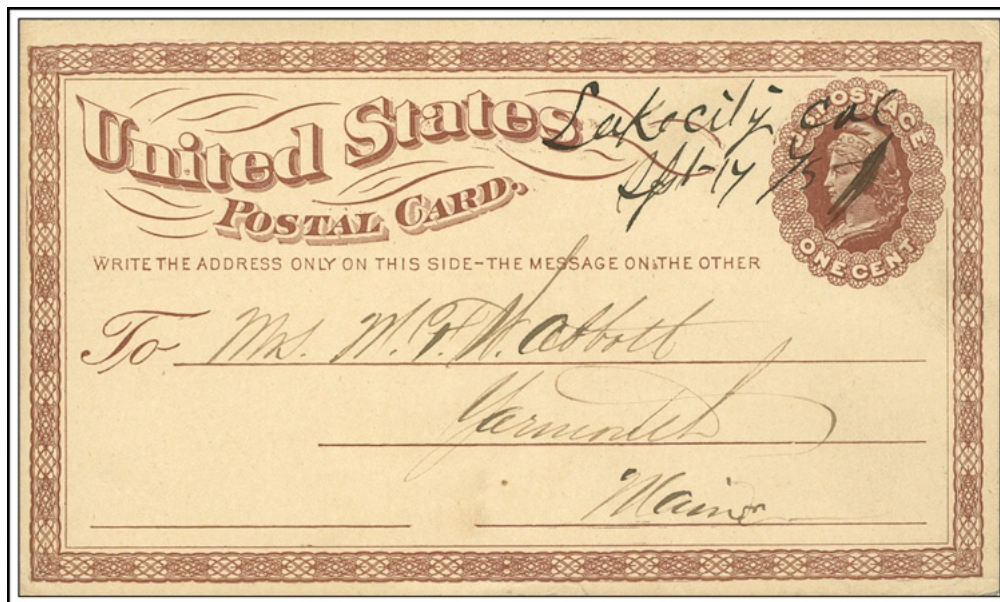 United States
POSTAL CARD.
Lakecity Cal
Spt-14
U.S. POSTAGE
ONE CENT
WRITE THE ADDRESS ONLY ON THIS SIDE-THE MESSAGE ON THE OTHER
To Mrs. W. F. W. Abbott
Yarmouth
Maine